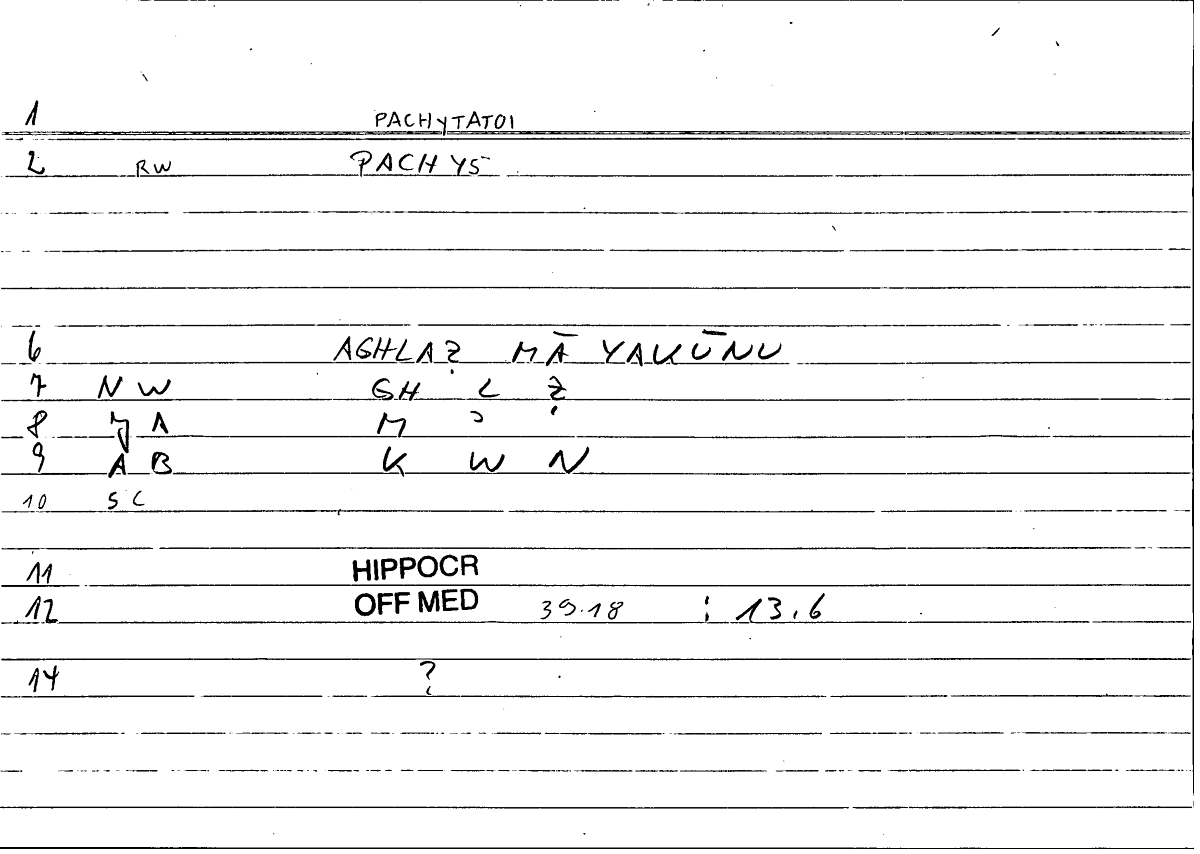 1 PACHYTATOI
2 RW PACHYS
6 AGHLAẒ MĀ YAKŪNU
7 NW GH L Ẓ
8 JA M ʾ
9 AB K W N
10 SC
11 HIPPOCR
12 OFF MED 39.18 : 13.6
14 ?